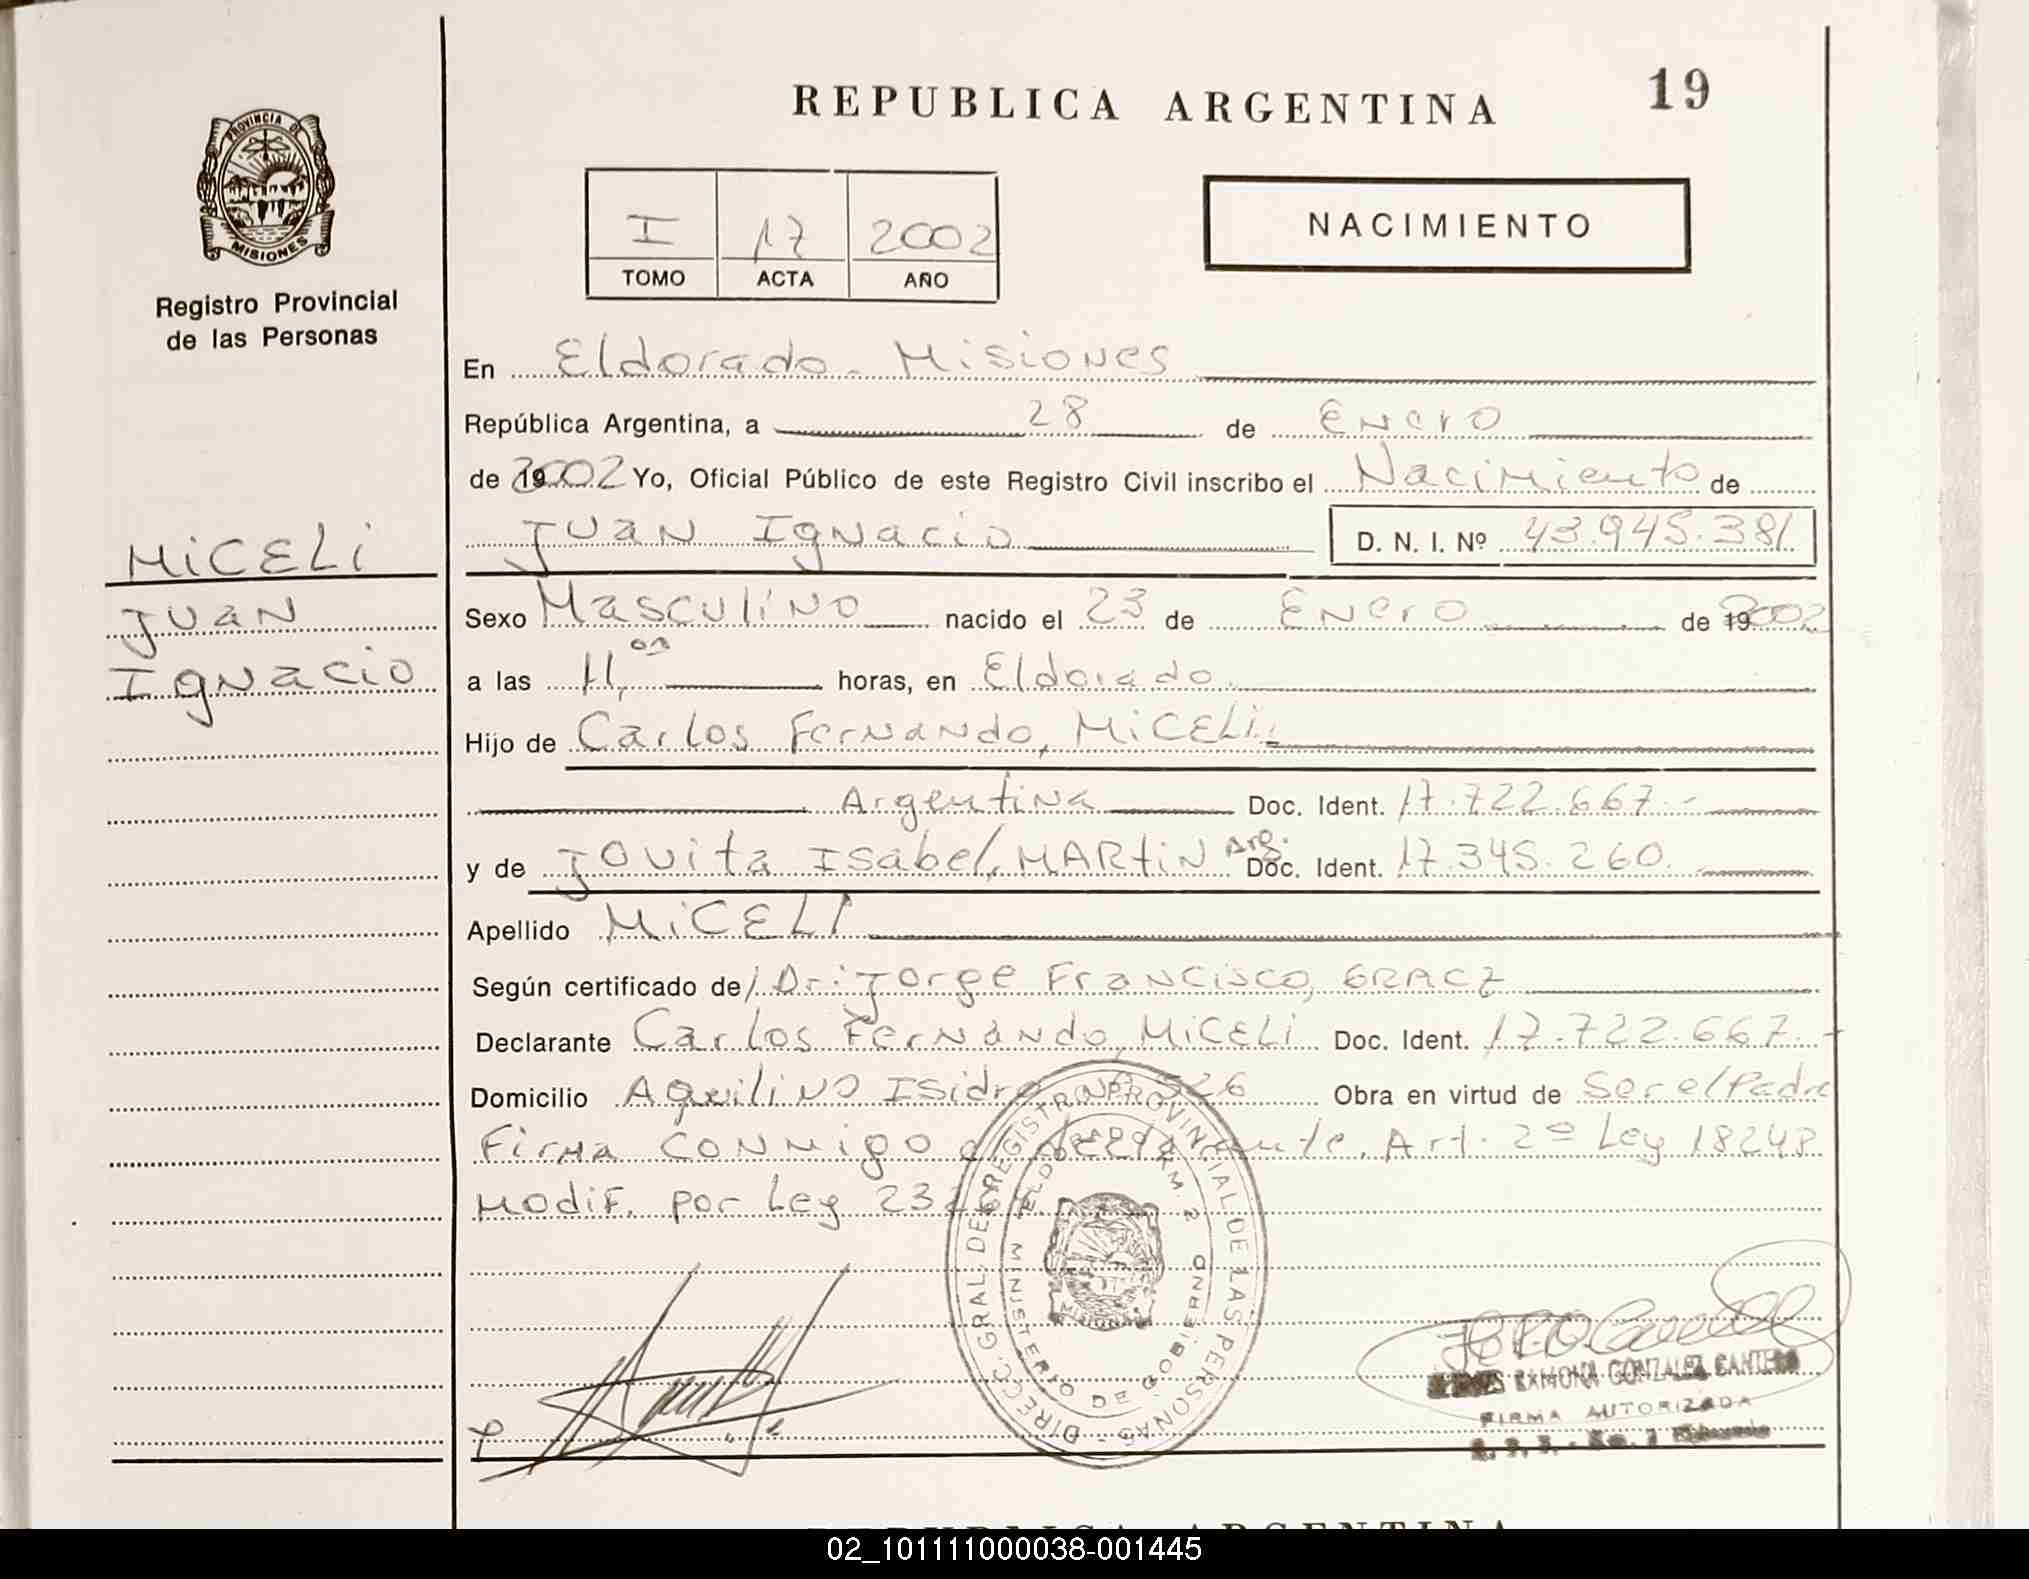 REPUBLICA ARGENTINA
19
PROVINCIA DE
MISIONES
Registro Provincial
de las Personas
I 17 2002
TOMO ACTA AÑO
NACIMIENTO
En Eldorado - Misiones
República Argentina, a 28 de Enero
de 2002 Yo, Oficial Público de este Registro Civil inscribo el Nacimiento de
Juan Ignacio D. N. I. Nº 43.945.381
MiCELi
Juan
Ignacio
Sexo Masculino nacido el 23 de Enero de 2002
a las 11,00 horas, en Eldorado
Hijo de Carlos Fernando, MiCELi
Argentina Doc. Ident. 17.722.667.-
y de Jovita Isabel, MARtiN Arg. Doc. Ident. 17.345.260.
Apellido MiCELI
Según certificado de/ Dr: Jorge Francisco, GRACZ
Declarante Carlos Fernando, MiCELi Doc. Ident. 17.722.667.-
Domicilio Aquilino Isidro Nº 526 Obra en virtud de Ser el Padre
Firma conmigo el declarante. Art. 2º Ley 18248
Modif. por Ley
DIRECC. GRAL. DE REGISTRO PROVINCIAL DE LAS PERSONAS
MINISTERIO DE GOBIERNO
RAMONA GONZALEZ CANTERO
FIRMA AUTORIZADA
Eldorado
REPUBLICA ARGENTINA
02_101111000038-001445